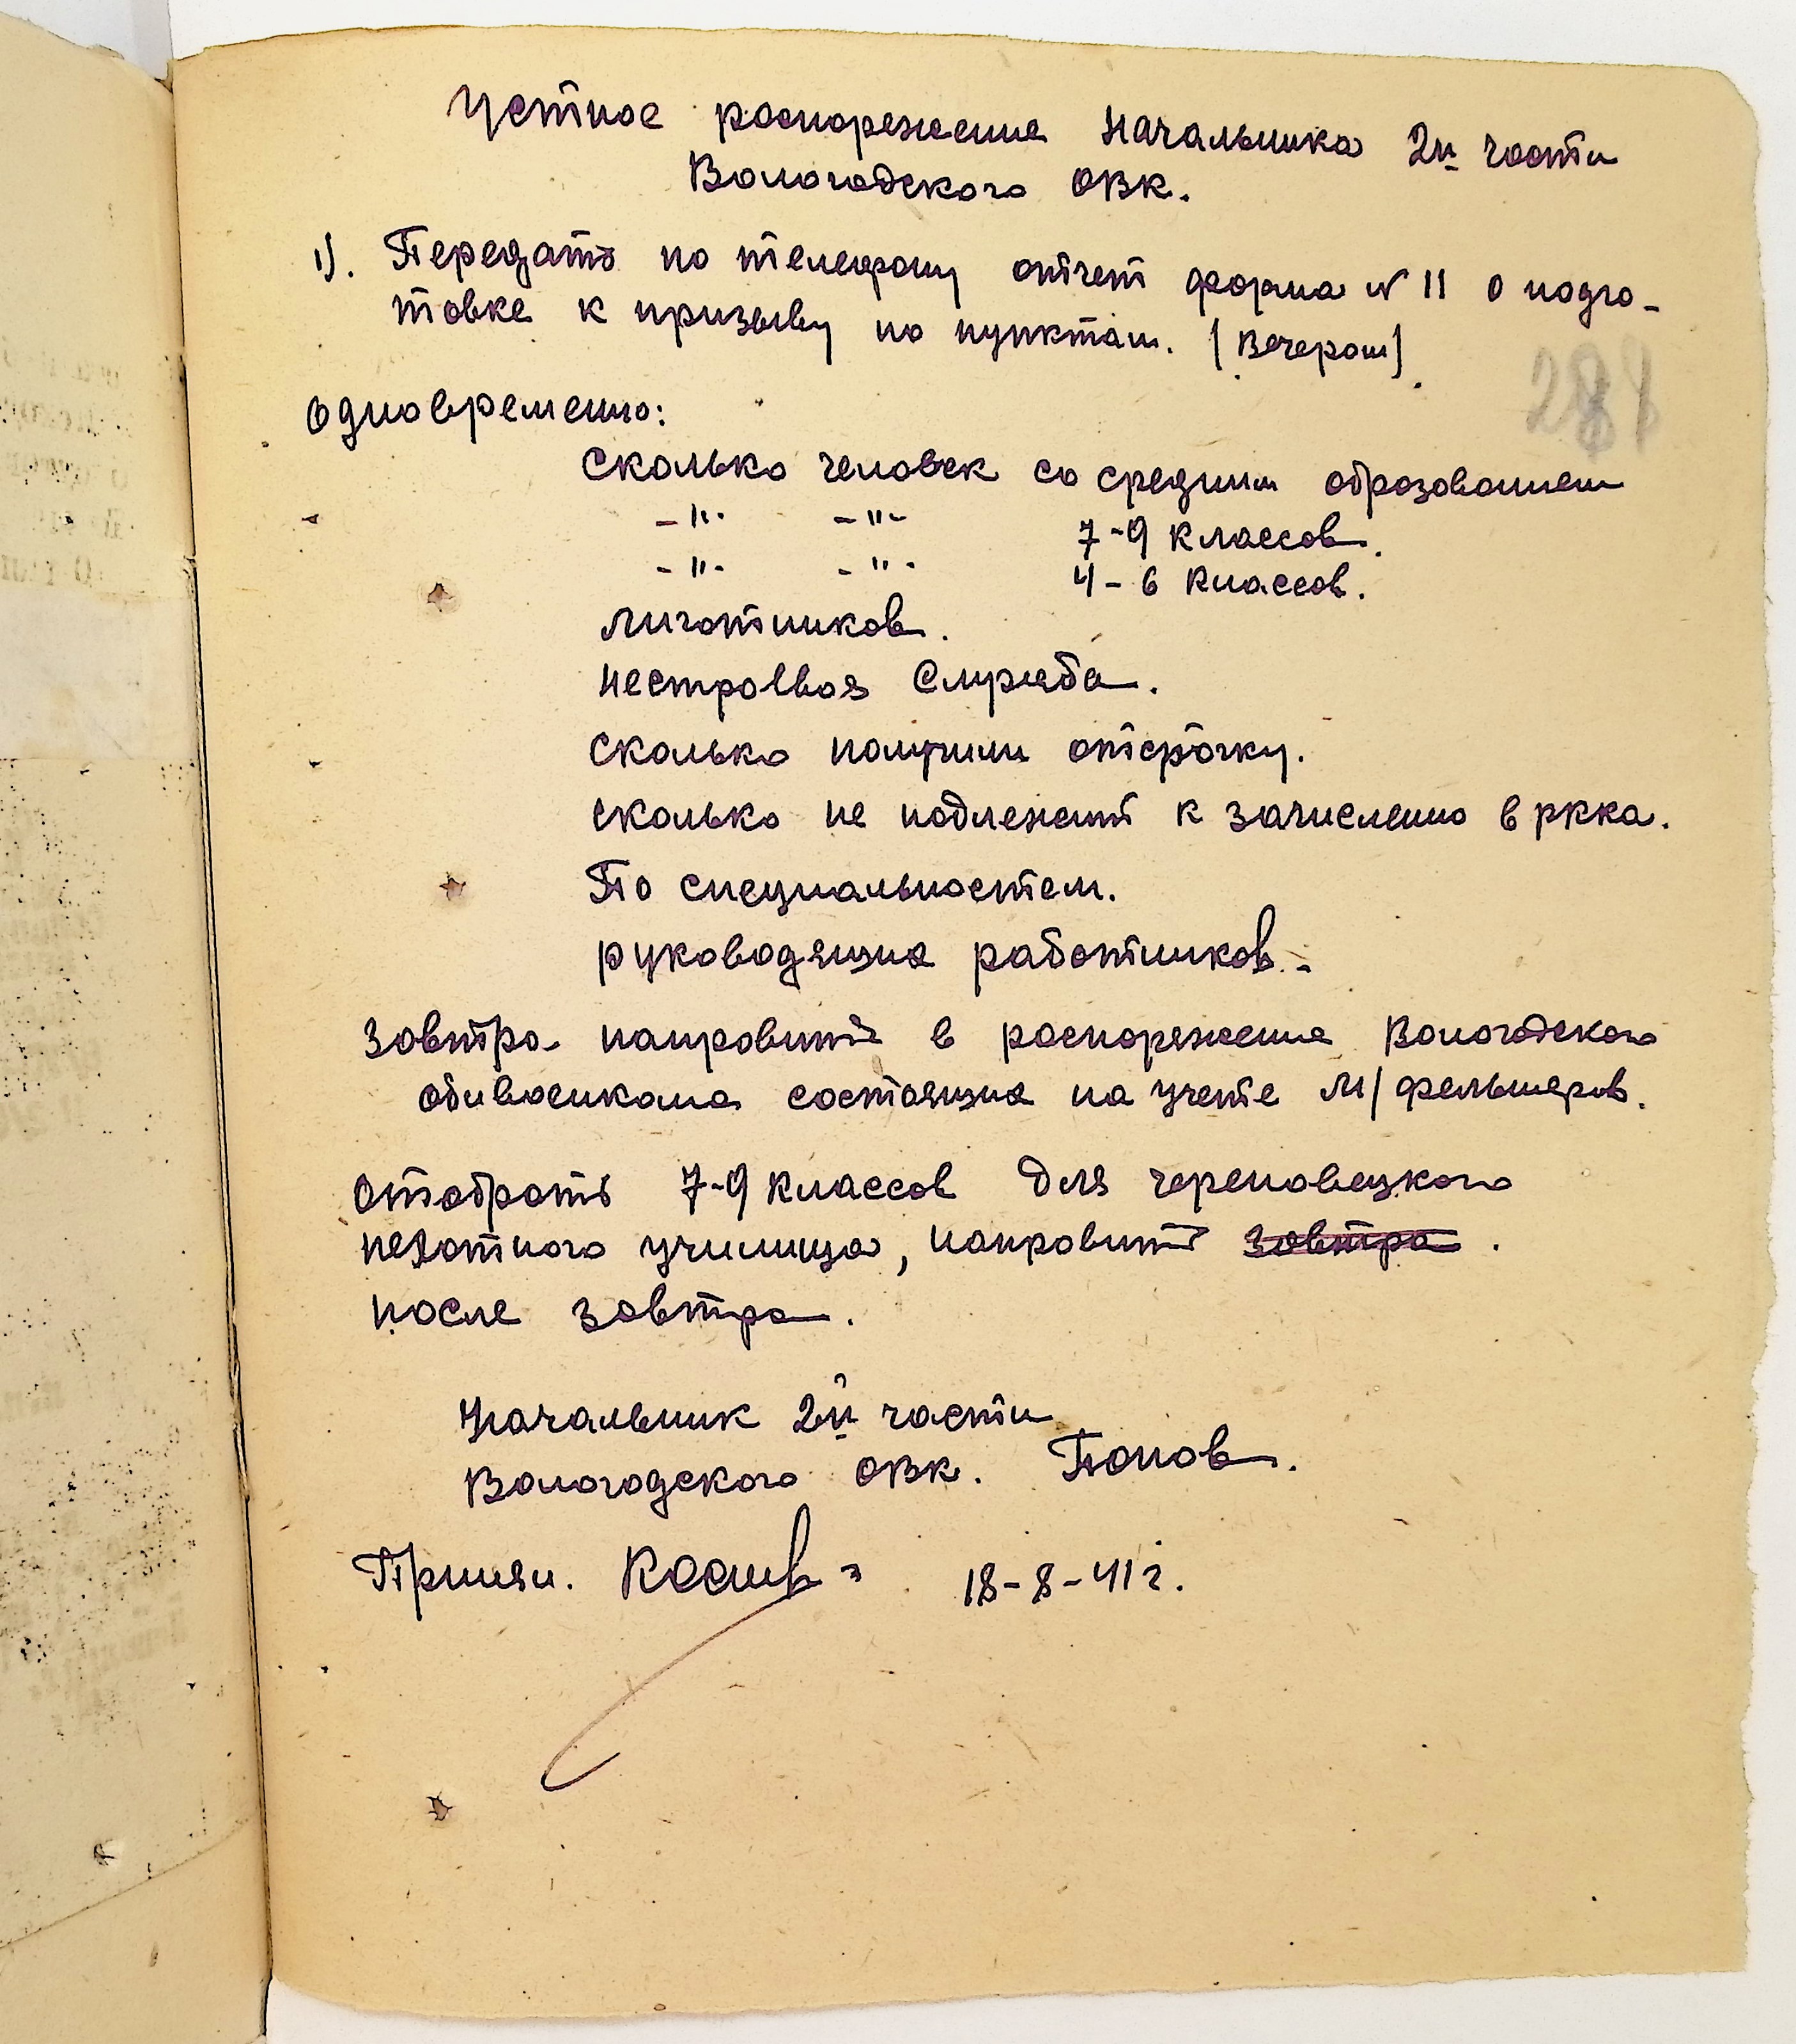 Устное распоряжение Начальника 2й части
Вологодского ОВК.
1). Передать по телефону отчет форма № 11 о подго-
товке к призыву по пунктам. [Вечером]
281
Одновременно:
Сколько человек со средним образованием
-"- -"- 7-9 классов.
-"- -"- 4-6 классов.
Лиготников.
Нестроевоя Служба.
Сколько получили отсрочку.
Сколько не подлежит к зачислению в РККА.
По специальностем.
руководящия работников.
Завтра направить в распоряжение Вологодского
облвоенкома состоящия на учете М/фельшеров.
Отобрать 7-9 классов для череповецкого
пехотного училища, направить завтра.
после завтра.
Начальник 2й части
Вологодского ОВК. Попов.
Принял. 18-8-41 г.